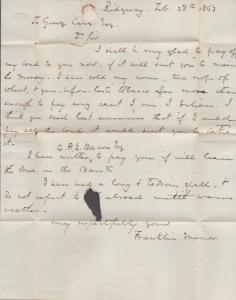 Ridgway, Feb. 28th 1863
To George Carr, Esq.
Dr Sir
I shall be very glad to pay off
my bond to you now, if it will suit you to receive
the money. I have sold my corn, two crops of
wheat, & you, before late tobacco for more than
enough to pay every cent I owe. I believe. I
think you said last summer that if I would
pay all the bond it would suit you to take
it.
C. R. E. Bacon Esq.
I have written, to pay you, & will leave
the bond in the Bank
I have had a long & tedious spell, &
do not expect to abroad until warm
weather.
Very respectfully yours
Franklin Minor